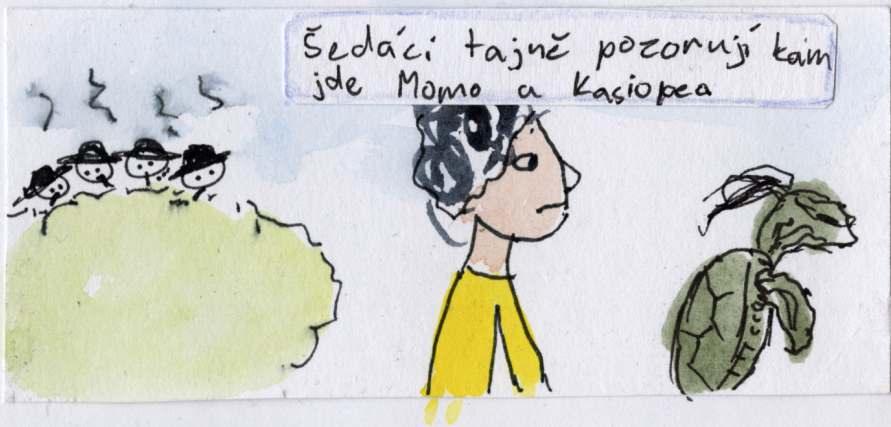 Šedáci tajně pozorují kam
jde Momo a Kasiopea